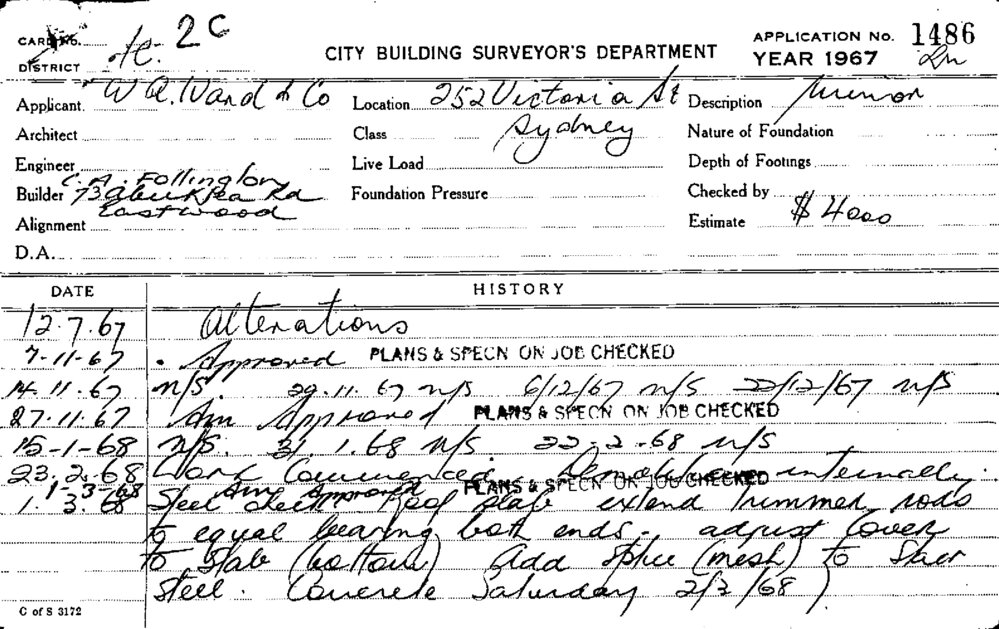 CARD No. 4c. 2C
DISTRICT
CITY BUILDING SURVEYOR'S DEPARTMENT
APPLICATION No. 1486
YEAR 1967
Applicant W A. Ward & Co Location 252 Victoria St Description Minor
Architect Class Sydney Nature of Foundation
Engineer Live Load Depth of Footings
Builder C. A. Follington 73 Abuklea Rd Eastwood Foundation Pressure Checked by
Alignment Estimate $4000
D.A.
DATE HISTORY
12.7.67 Alterations
7-11-67 . Approved PLANS & SPECN ON JOB CHECKED
14.11.67 n/s. 29.11.67 n/s 6/12/67 n/s 22/12/67 n/s
27.11.67 Am Approved PLANS & SPECN ON JOB CHECKED
15-1-68 n/s. 31.1.68 n/s. 22-2-68 n/s
23.2.68 Work Commenced. Demolition internally.
1-3-68 Am Approved PLANS & SPECN ON JOB CHECKED
1.3.68 Steel check Roof Slab extend trimmer rods
to equal bearing both ends. adjust cover
to Slab (bottom) Add splice (mesh) to Stair
Steel. Concrete Saturday 2/3/68)
C of S 3172